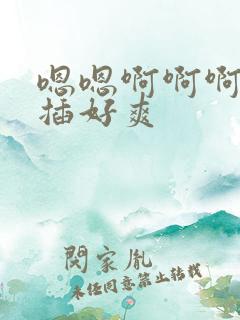 嗯嗯啊啊啊
插好爽
闵家胤
未经同意禁止转载